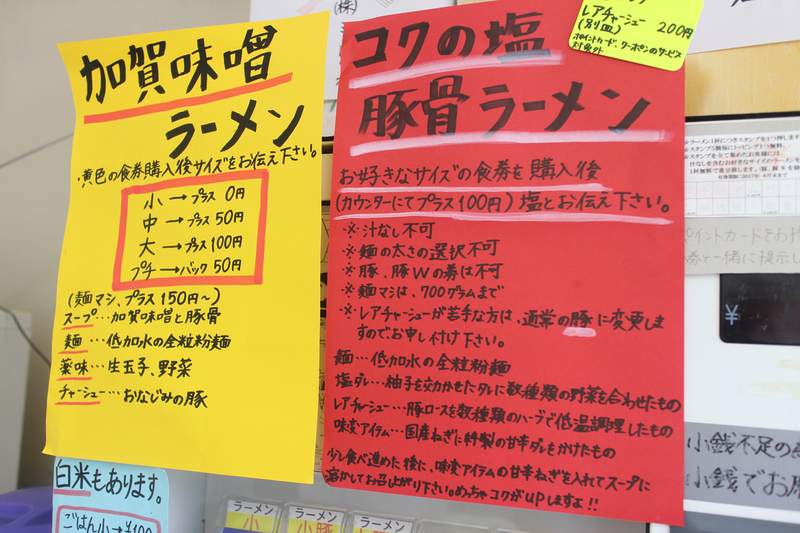 加賀味噌
ラーメン
・黄色の食券購入後サイズをお伝え下さい。
小→プラス 0円
中→プラス 50円
大→プラス 100円
プチ→バック 50円
(麺マシ、プラス 150円〜)
スープ…加賀味噌と豚骨
麺…低加水の全粒粉麺
薬味…生玉子、野菜
チャーシュー…おなじみの豚
白米もあります。
ごはん小→¥100
(株)
コクの塩
豚骨ラーメン
お好きなサイズの食券を購入後
(カウンターにてプラス100円)塩とお伝え下さい。
※汁なし不可
※麺の太さの選択不可
※豚、豚Wの券は不可
※麺マシは、700グラムまで
※レアチャーシューが苦手な方は、通常の豚に変更しますのでお申し付け下さい。
麺…低加水の全粒粉麺
塩ダレ…柚子を効かせたダレに数種類の野菜を合わせたもの
レアチャーシュー…豚ロースを数種類のハーブで低温調理したもの
味変アイテム…国産ねぎに特製の甘辛ダレをかけたもの
少し食べ進めた後に、味変アイテムの甘辛ねぎを入れてスープに
溶かしてお召上がり下さい。めっちゃコクがUPしますよ!!
レアチャーシュー
(別皿) 200円
ポイントカード、クーポンのサービス
対象外
ラーメン1杯につきスタンプを1つ押します
スタンプ5個毎にトッピング1つ無料
¥
小銭不足の
小銭でお
ラーメン
小
ラーメン
小豚
ラーメン